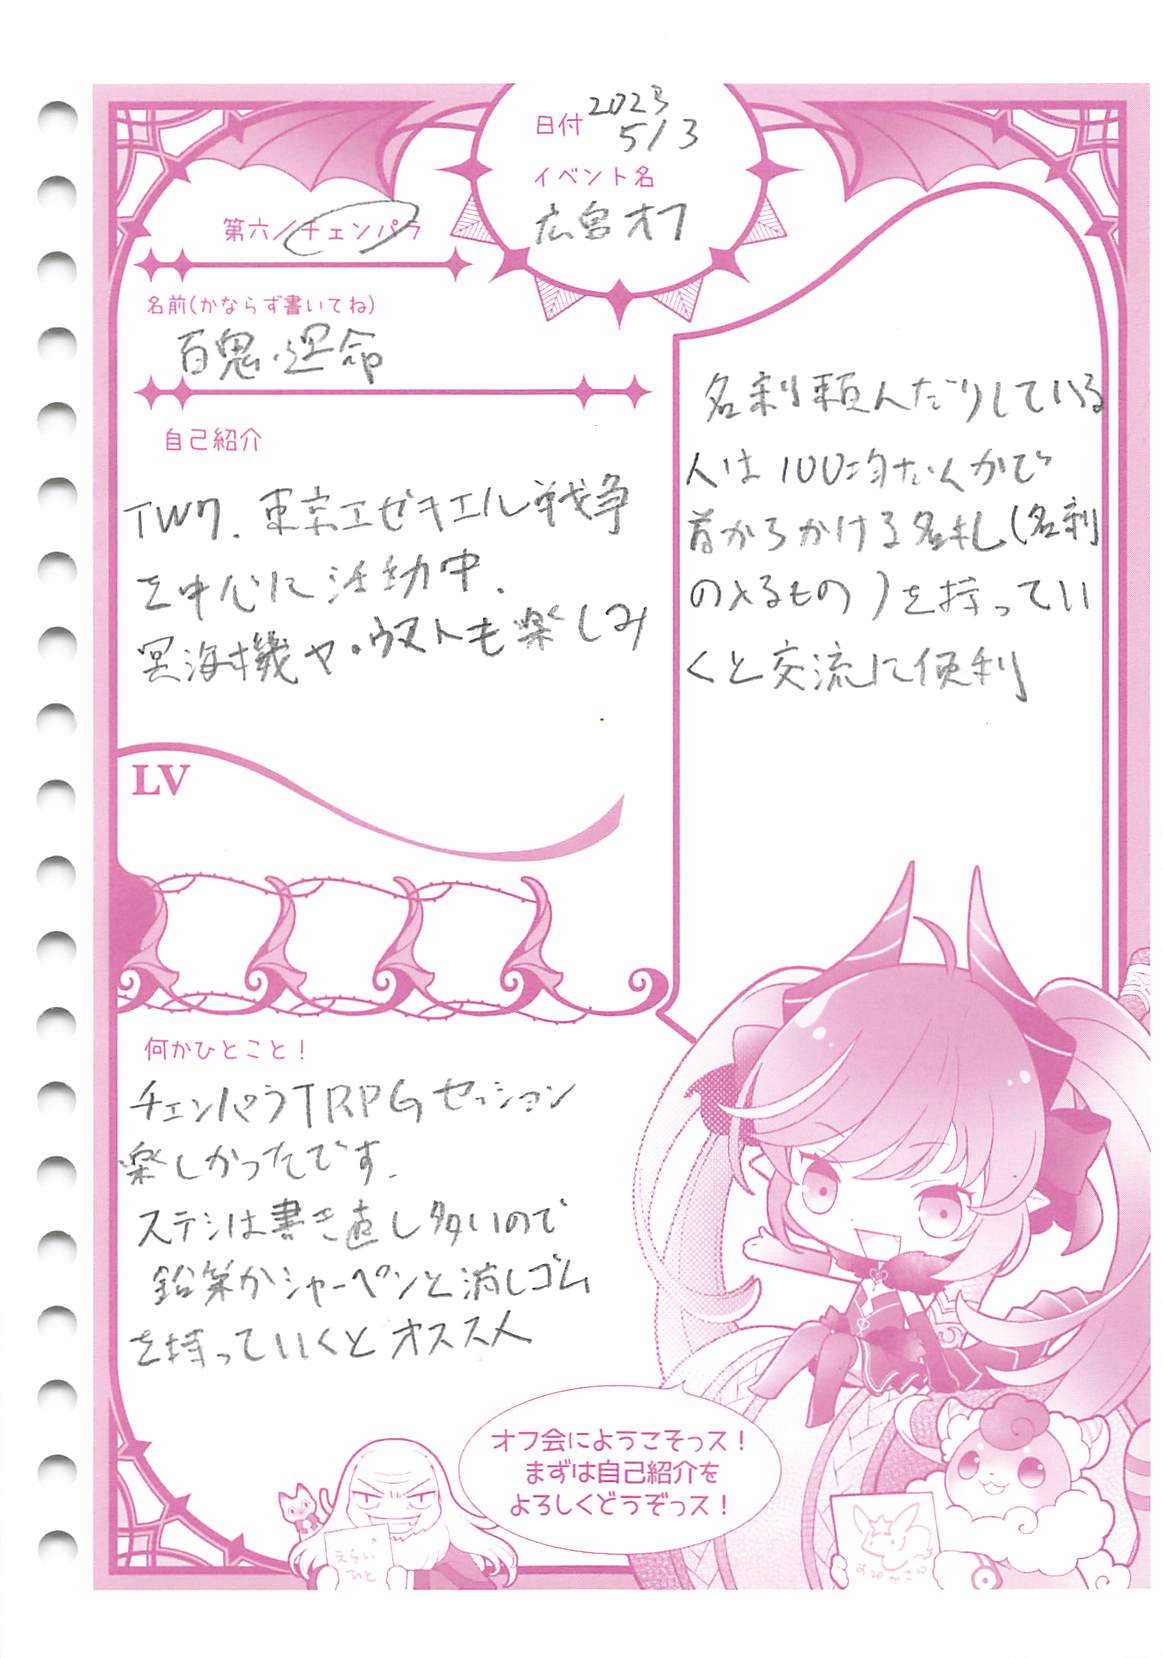 日付 2023
5/3
イベント名
広島オフ
第六/チェンパラ
名前(かならず書いてね)
百鬼・運命
自己紹介
TW7、東京エゼキエル戦争
を中心に活動中、
冥海機ヤ・ウマトも楽しみ
名刺頼んだりしている
人は100均なんかで
首からかける名札(名刺
のスるもの)を持ってい
くと交流に便利
LV
何かひとこと!
チェンパラTRPGセッション
楽しかったです。
ステシは書き直し多いので
鉛筆かシャーペンと消しゴム
を持っていくとオススメ
オフ会にようこそっス!
まずは自己紹介を
よろしくどうぞっス!
えらい
ひと